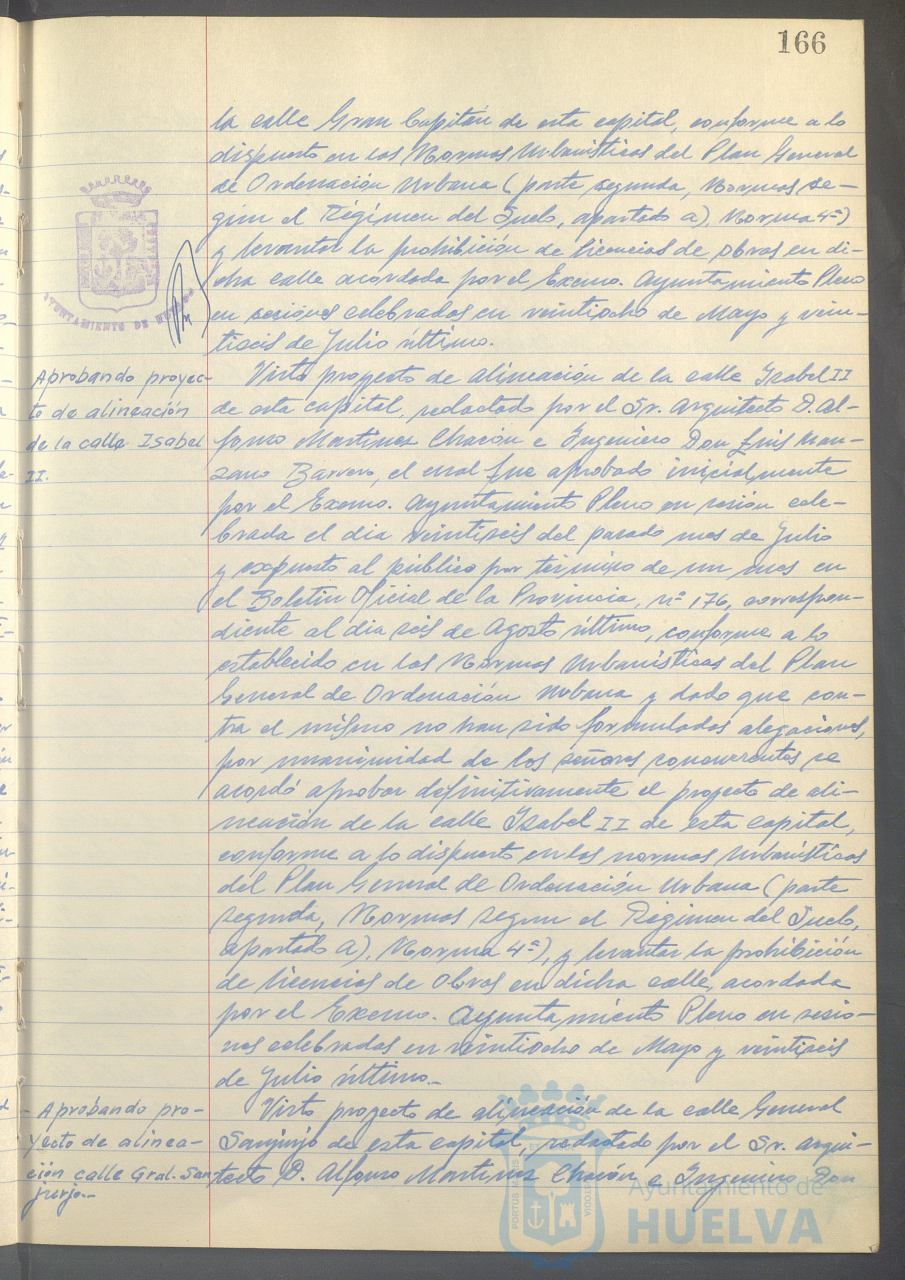 166
la calle Gran Capitán de esta capital, conforme a lo
dispuesto en las Normas Urbanísticas del Plan General
de Ordenación Urbana (parte segunda, Normas se-
gún el Régimen del Suelo, apartado a), Norma 4ª)
y levantar la prohibición de licencias de obras en di-
cha calle acordada por el Excmo. Ayuntamiento Pleno
en sesiones celebradas en veintiocho de Mayo y vein-
tiseis de Julio último.
AYUNTAMIENTO DE HUELVA
Aprobando proyec-
to de alineación
de la calle Isabel
II.
Visto proyecto de alineación de la calle Isabel II
de esta capital, redactado por el Sr. Arquitecto D. Al-
fonso Martinez Chacón e Ingeniero Don Luis Man-
zano Barrero, el cual fue aprobado inicialmente
por el Excmo. Ayuntamiento Pleno en sesión cele-
brada el dia veintiseis del pasado mes de Julio
y expuesto al público por término de un mes en
el Boletin Oficial de la Provincia, nº 176, correspon-
diente al dia seis de Agosto último, conforme a lo
establecido en las Normas Urbanísticas del Plan
General de Ordenación Urbana y dado que con-
tra el mismo no han sido formuladas alegaciones,
por unanimidad de los señores concurrentes se
acordó aprobar definitivamente el proyecto de ali-
neación de la calle Isabel II de esta capital,
conforme a lo dispuesto en las normas Urbanísticas
del Plan General de Ordenación Urbana (parte
segunda, Normas segun el Régimen del Suelo,
apartado a), Norma 4ª), y levantar la prohibición
de licencias de Obras en dicha calle, acordada
por el Excmo. Ayuntamiento Pleno en sesio-
nes celebradas en veintiocho de Mayo y veintiseis
de Julio último.-
Aprobando pro-
yecto de alinea-
ción calle Gral. San
jurjo.-
Visto proyecto de alineación de la calle General
Sanjurjo de esta capital, redactado por el Sr. Arqui-
tecto D. Alfonso Martinez Chacón e Ingeniero Don
Ayuntamiento de
HUELVA